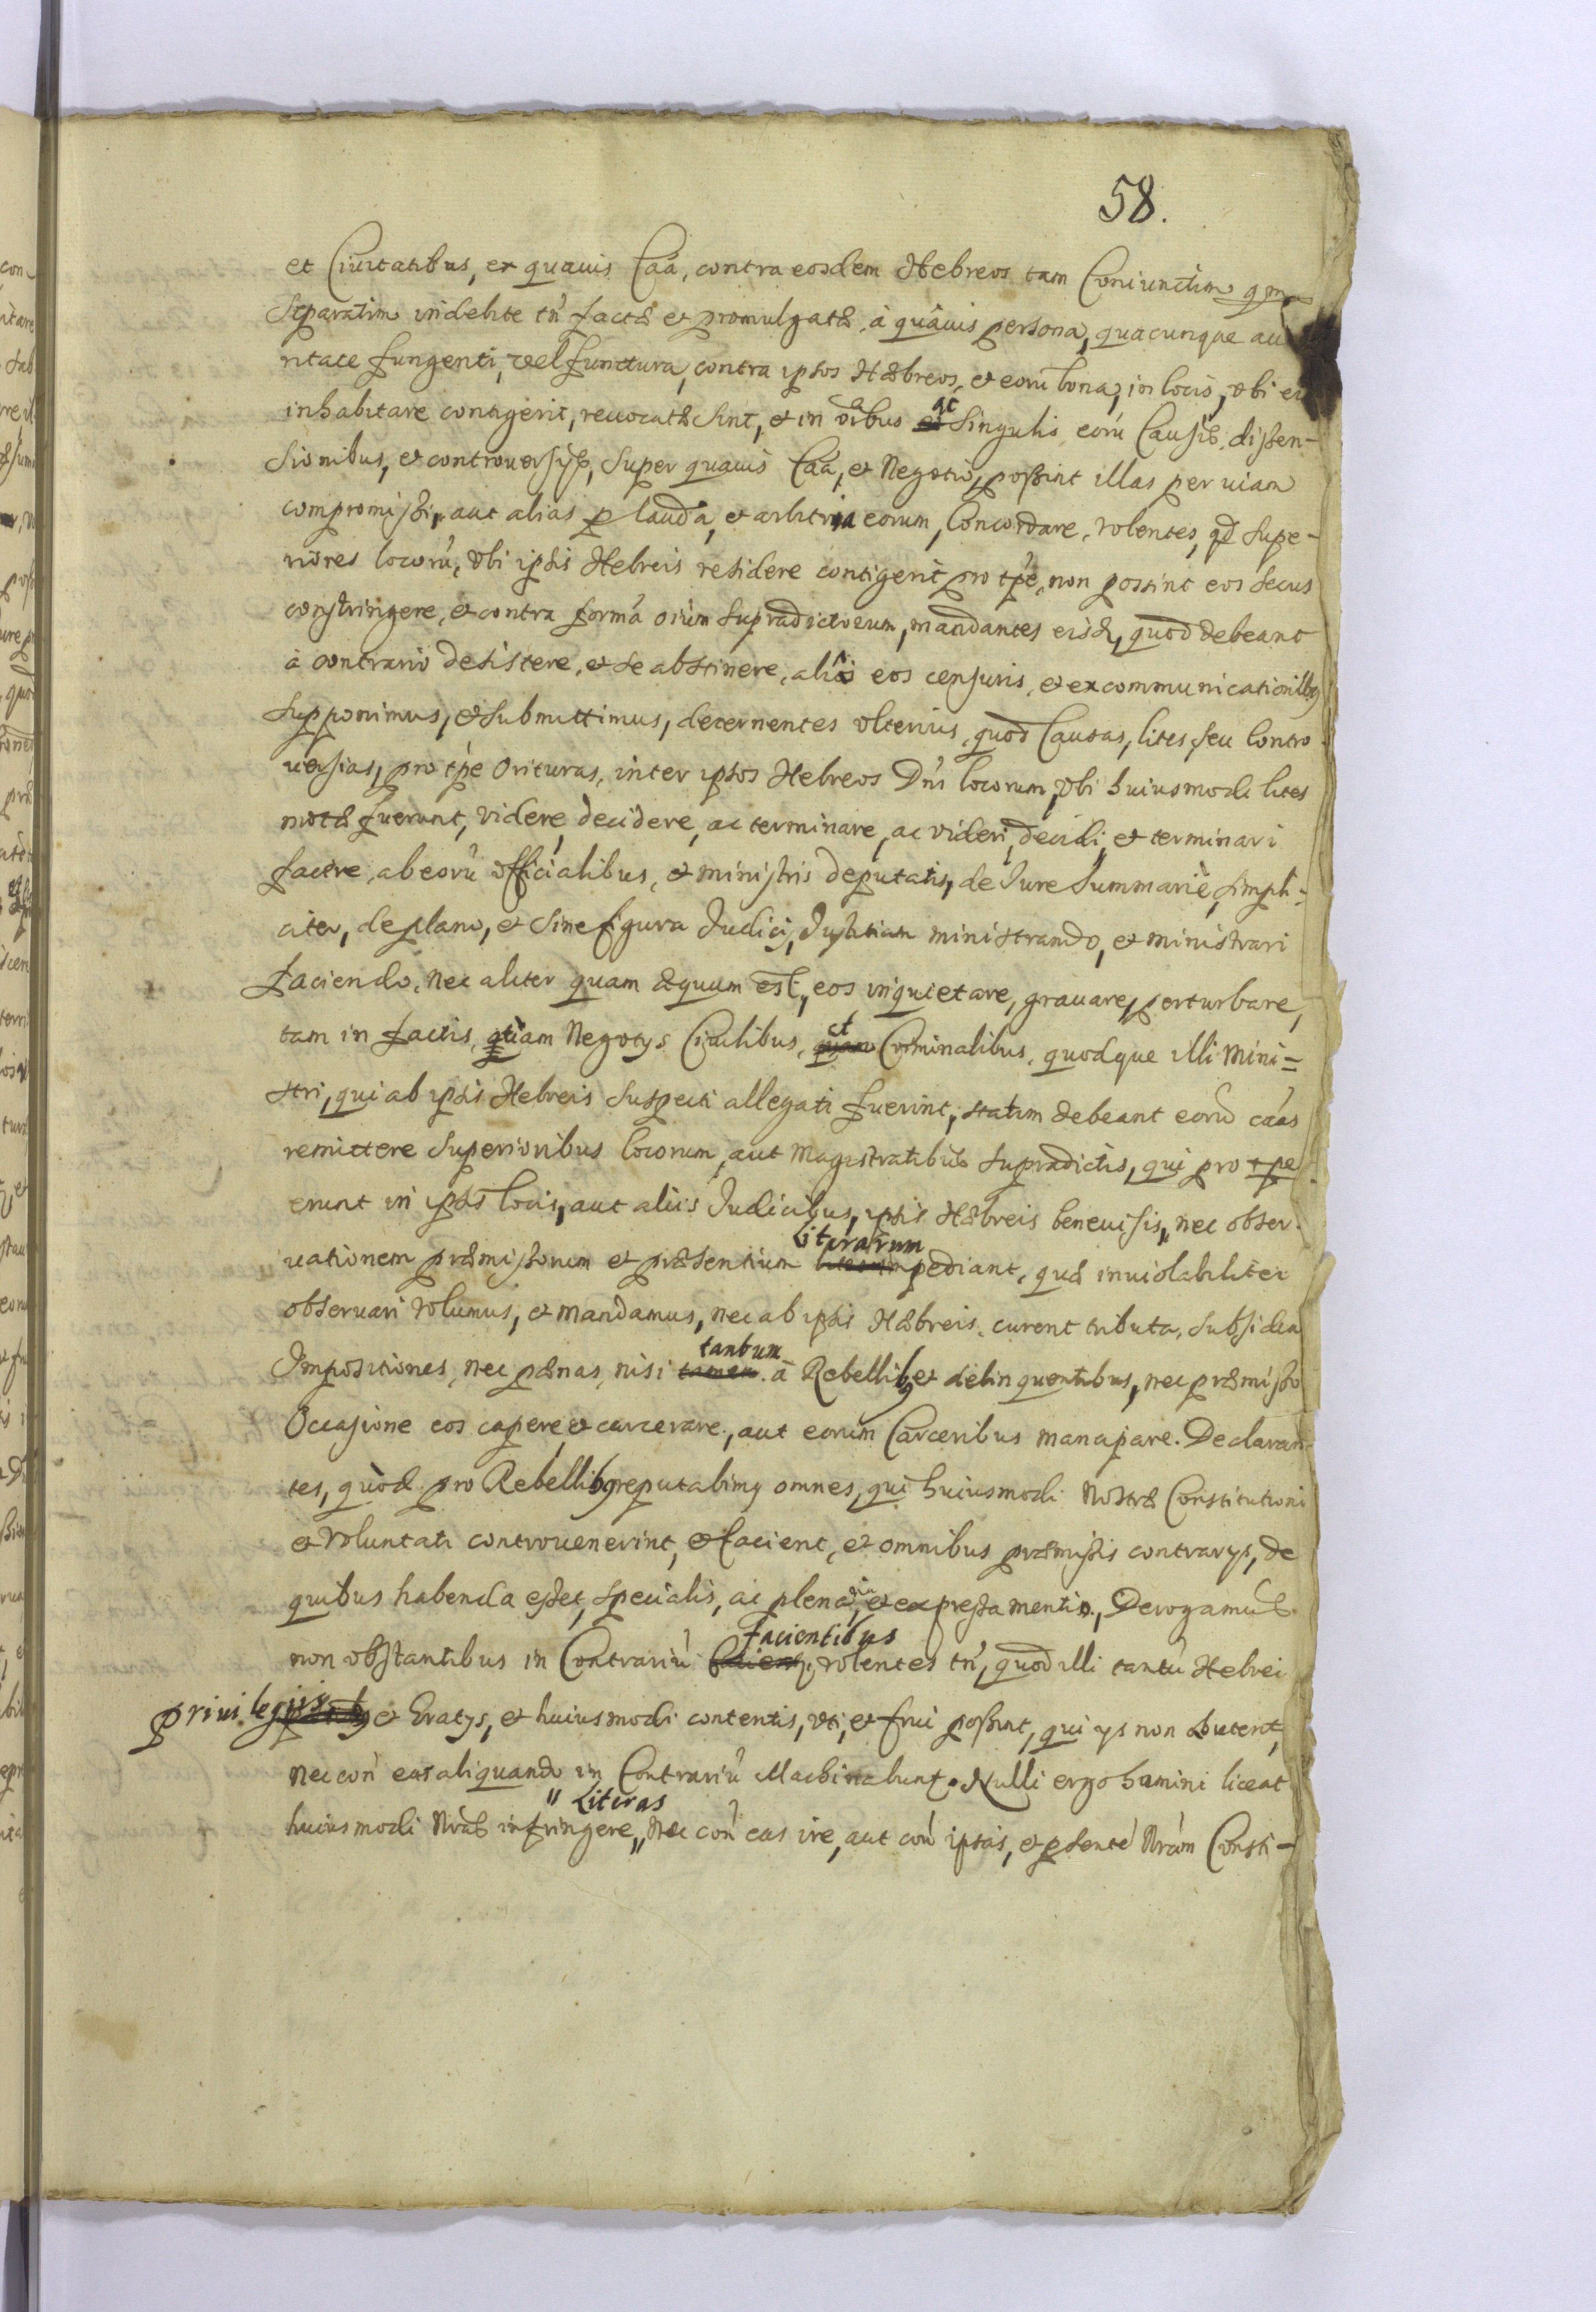 58.
et Ciuitatibus, ex quauis Caã, contra eosdem Hebreos tam Coniunctim qm
Separatim indebite tñ factæ et promulgatæ, à quâuis persona, quacunque au
ritate fungenti, vel functura, contra ipsos Hæbreos, et eorũ bona, in locis, vbi
inhabitare contigerit, reuocatæ sint, et in oibus ac Singulis eorũ Causis, dissen-
sionibus, et controuersijs, super quauis Caã, et Negotio, possint illas per uiam
compromissi, aut alias p lauda, et arbitria eorum, Concordare, volentes, qd supe-
riores locorũ, vbi ipsis Hebreis residere contigerit pro tpe, non possint eos secus
constringere, et contra formã oium supradictorum, mandantes eisd, quod debeant
à contrario desistere, et se abstinere, aliâs eos censuris, et excommunicationibq
supponimus, et submittimus, decernentes vlterius, quod Causas, lites, seu Contro
uersias, pro tpe Orituras, inter ipsos Hebreos Dñi locorum, vbi huiusmodi lites
motæ fuerunt, videre, decidere, ac terminare, ac videri, decidi, et terminari
facere, ab eorũ officialibus, et ministris deputatis, de Iure Summariè, simpli-
citer, de plano, et Sine figura Iudicij, Iustitiam ministrando, et ministrari
faciendo, nec aliter quam æquum est, eos inquietare, grauare, perturbare,
tam in factis, quam Negotys Ciuilibus, et Criminalibus, quodque illi Mini=
stri, qui ab ipsis Hebreis suspecti allegati fuerint, statim debeant eorũ cãas
remittere Superioribus locorum, aut Magistratibus supradictis, qui pro tpe
erunt in ipsis locis, aut aliis Iudicibus, ipsis Hæbreis beneuisis, nec obser-
Literarum
uationem præmissorum et præsentium impediant, quæ inuiolabiliter
obseruari volumus, et mandamus, nec ab ipsis Hæbreis, curent tributa, subsidia
tantum
Impositiones, nec pænas, nisi tamen à Rebellibq et delinquentibus, nec præmisso
Occasione eos capere, et carcerare, aut eorum Carceribus mancipare. Declaran
tes, quòd pro Rebellibq reputabimq omnes, qui huiusmodi Nostræ Constitutioni
et voluntati controuenerint, et facient, et omnibus præmissis contrarys, de
quibus habenda esset, specialis, ac plena, et expressa mentio, Derogamus
facientibus
non obstantibus in Contrariũ volentes tñ, quod illi tantũ Hebrei
priuilegijs et Gratys, et huiusmodi contentis, vti, et frui possint, qui ys non abutent,
nec coñ eas aliquando in Contrariũ Machinabunt. Nulli ergo hamini liceat
" Literas
huiusmodi Nrãs infringere, " Nec coñ eas ire, aut coñ ipsas, et psentẽ Nrãm Consti-